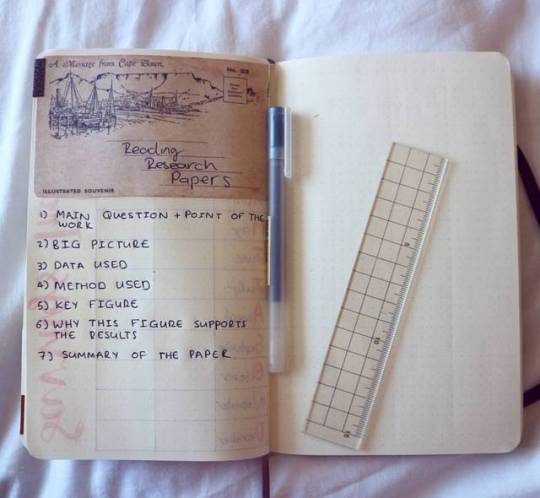 A Message from Cape Town
Reading
Research
Papers
ILLUSTRATED SOUVENIR
1) MAIN QUESTION + POINT OF THE
WORK
2) BIG PICTURE
3) DATA USED
4) METHOD USED
5) KEY FIGURE
6) WHY THIS FIGURE SUPPORTS
THE RESULTS
7) SUMMARY OF THE PAPER
5
10
15